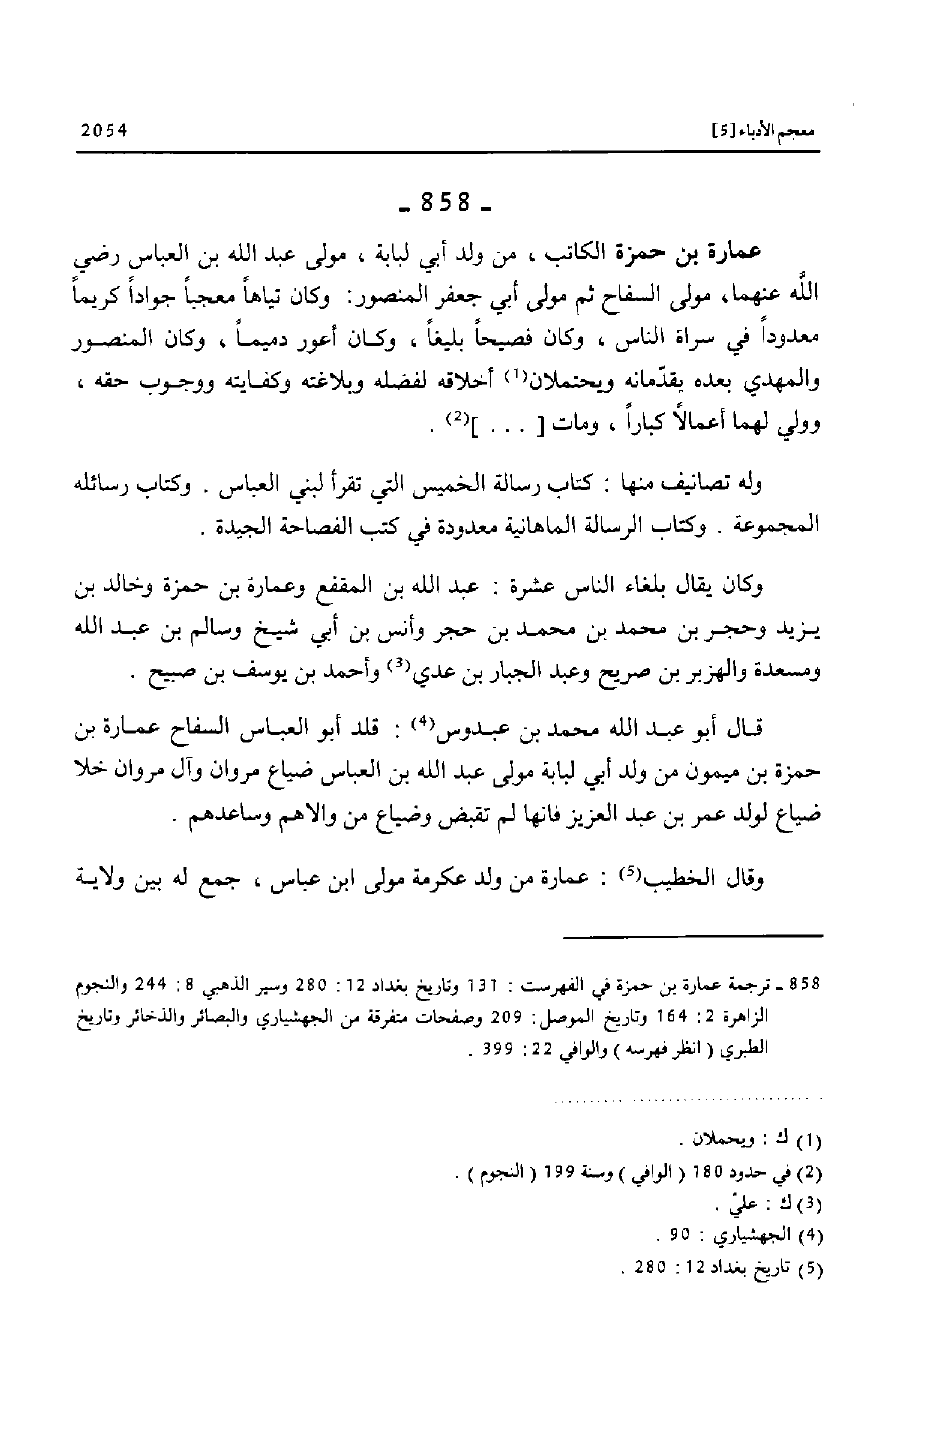 معجم الأدباء [5] 2054
ـ 858 ـ
عمارة بن حمزة الكاتب ، من ولد أبي لبابة ، مولى عبد الله بن العباس رضي
اللّه عنهما، مولى السفاح ثم مولى أبي جعفر المنصور: وكان تياهاً معجباً جواداً كريماً
معدوداً في سراة الناس ، وكان فصيحاً بليغاً ، وكان أعور دميماً ، وكان المنصور
والمهدي بعده يقدّمانه ويحتملان(1) أخلاقه لفضله وبلاغته وكفايته ووجوب حقه ،
وولي لهما أعمالاً كباراً ، ومات [ . . . ](2) .
وله تصانيف منها : كتاب رسالة الخميس التي تقرأ لبني العباس . وكتاب رسائله
المجموعة . وكتاب الرسالة الماهانية معدودة في كتب الفصاحة الجيدة .
وكان يقال بلغاء الناس عشرة : عبد الله بن المقفع وعمارة بن حمزة وخالد بن
يزيد وحجر بن محمد بن محمد بن حجر وأنس بن أبي شيخ وسالم بن عبد الله
ومسعدة والهزبر بن صريح وعبد الجبار بن عدي(3) وأحمد بن يوسف بن صبيح .
قال أبو عبد الله محمد بن عبدوس(4) : قلد أبو العباس السفاح عمارة بن
حمزة بن ميمون من ولد أبي لبابة مولى عبد الله بن العباس ضياع مروان وآل مروان خلا
ضياع لولد عمر بن عبد العزيز فانها لم تقبض وضياع من والاهم وساعدهم .
وقال الخطيب(5) : عمارة من ولد عكرمة مولى ابن عباس ، جمع له بين ولاية
858 ـ ترجمة عمارة بن حمزة في الفهرست : 131 وتاريخ بغداد 12 : 280 وسير الذهبي 8 : 244 والنجوم
الزاهرة 2 : 164 وتاريخ الموصل : 209 وصفحات متفرقة من الجهشياري والبصائر والذخائر وتاريخ
الطبري ( انظر فهرسه ) والوافي 22 : 399 .
(1) ك : ويحملان .
(2) في حدود 180 ( الوافي ) وسنة 199 ( النجوم ) .
(3) ك : عليّ .
(4) الجهشياري : 90 .
(5) تاريخ بغداد 12 : 280 .